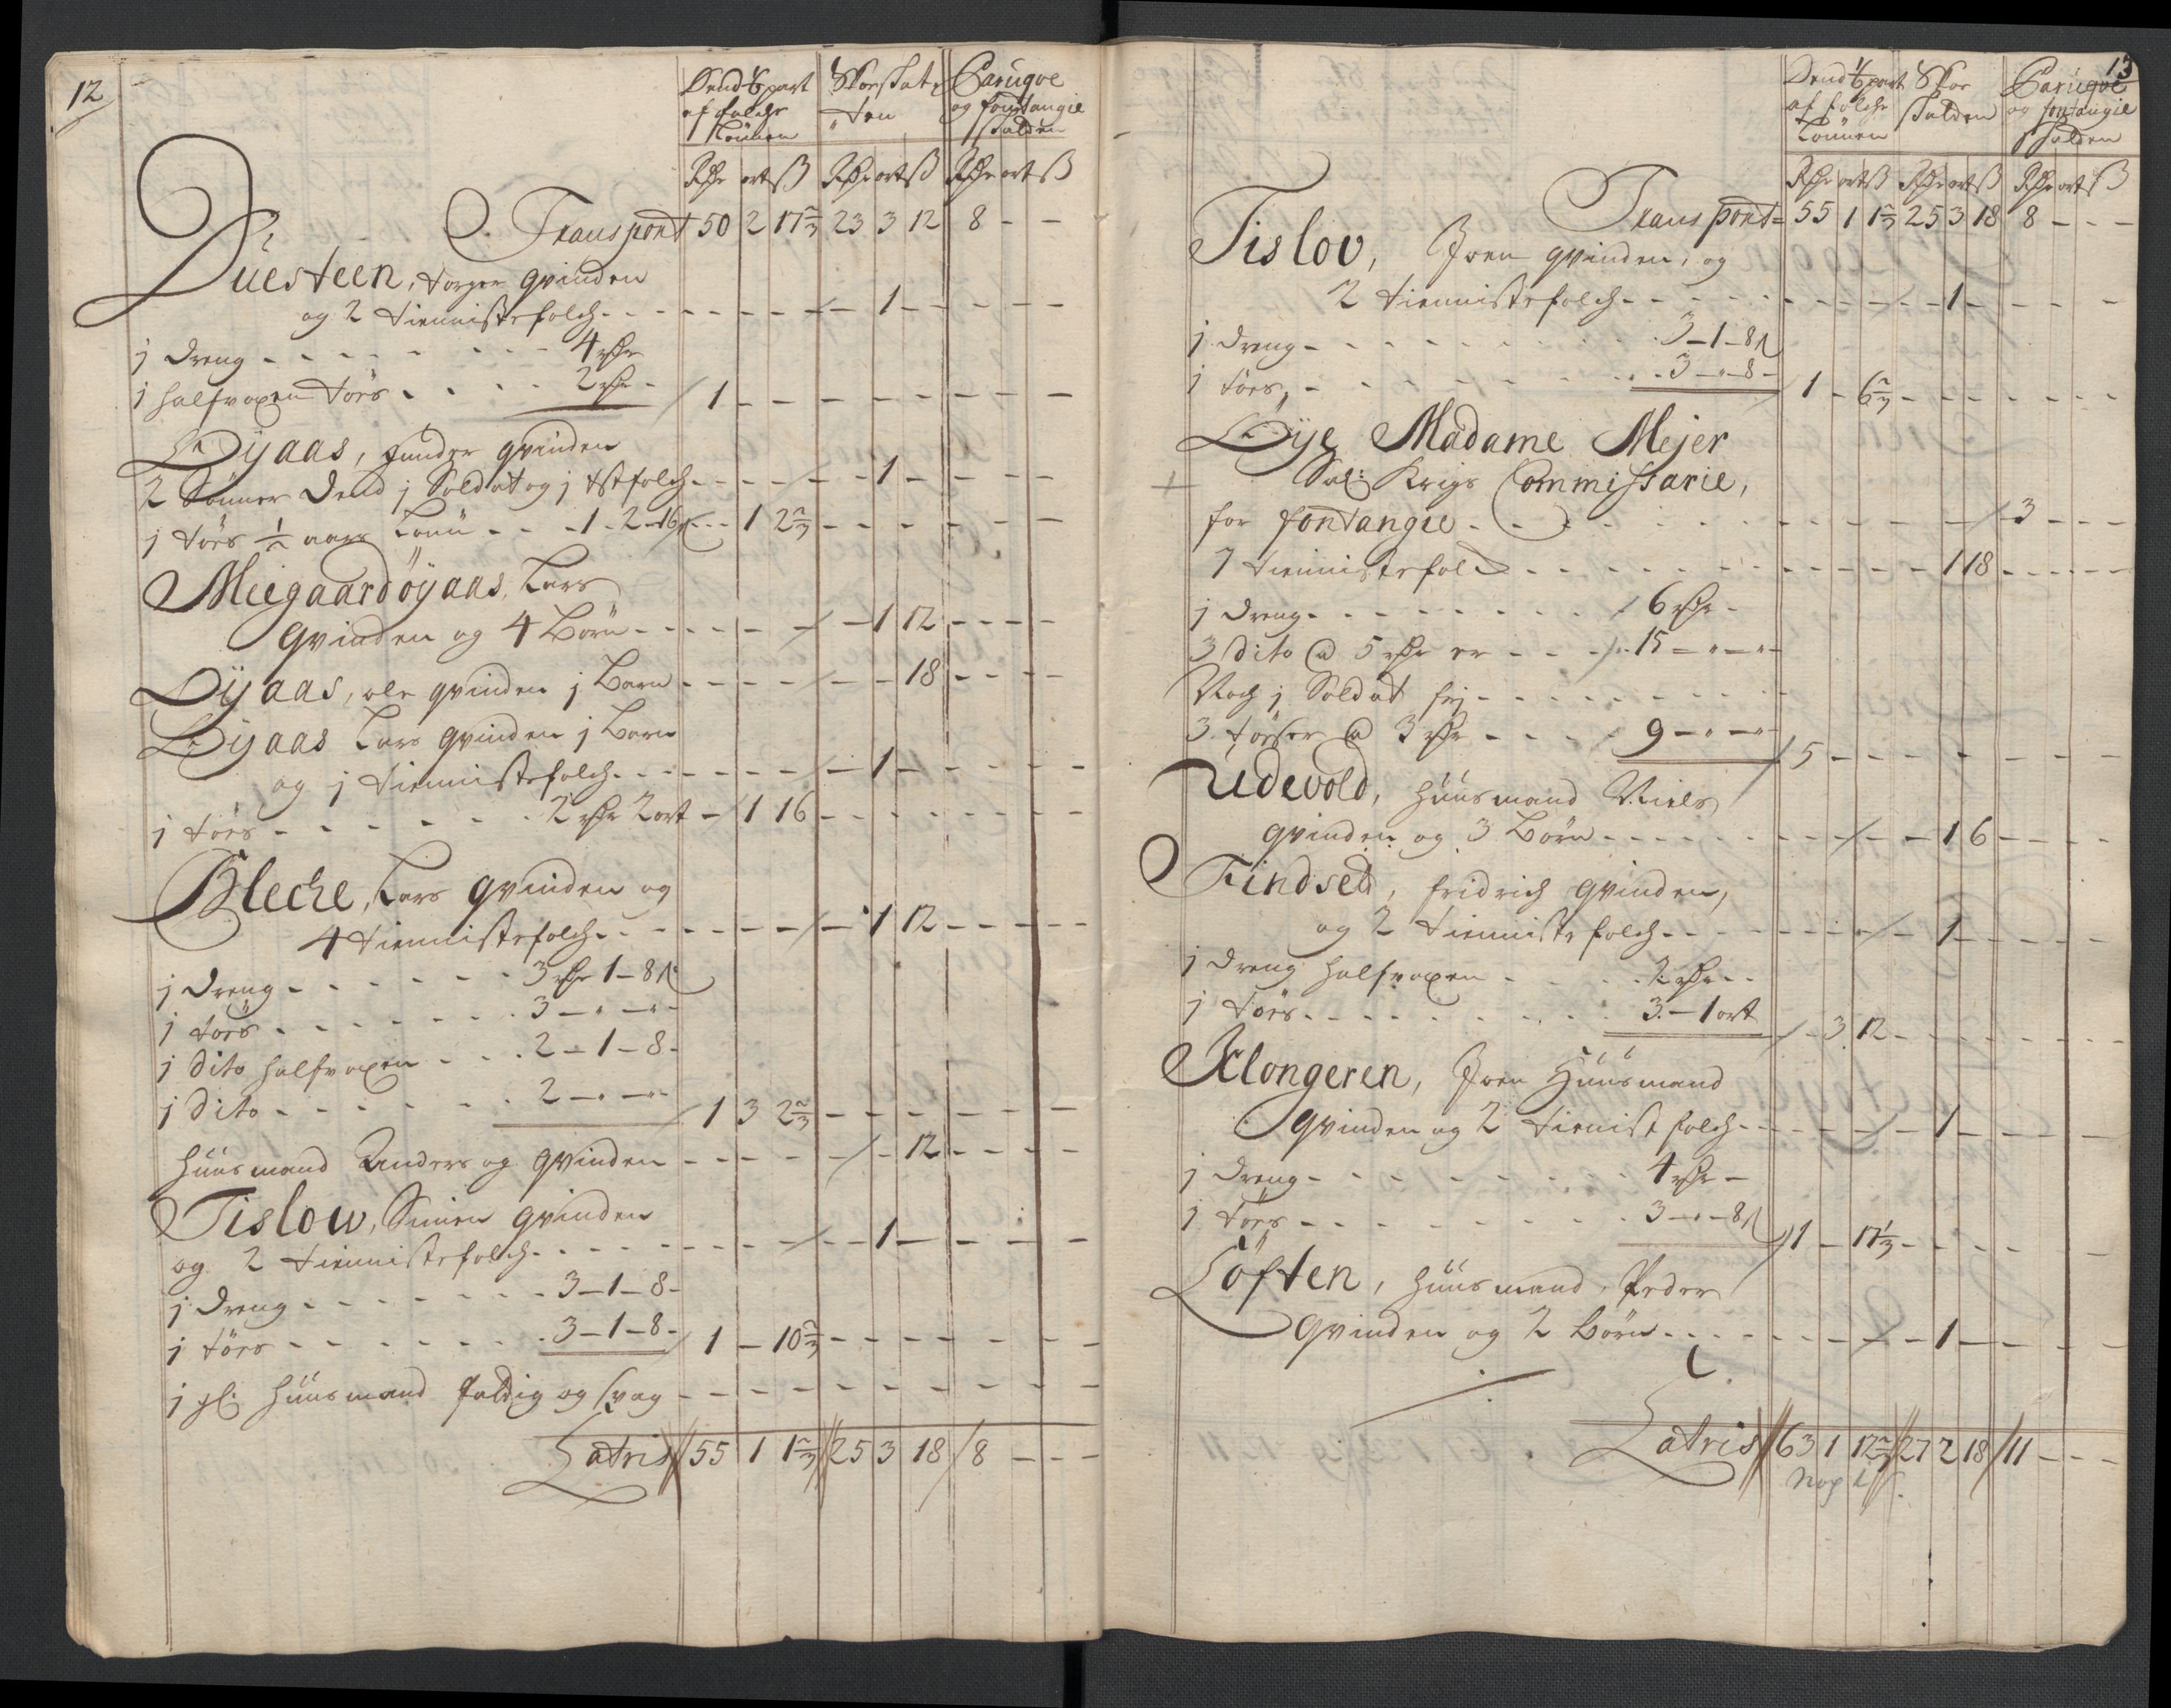 12
Dend 1/6 part
af folche
Lönnen
Skoe skat
ten
Caruqve
og fontangie
skatten
Rdr ort ß Rdr ort ß Rdr ort ß
Transport 50 2 17 2/3 23 3 12 8 - -
Duesteen, torger qvinden
og 2 tiennistefolch - - - 1 - -
j dreng - - - 4 rdr
j halfvoxen törs - - - 2 rdr - 1 - -
Öyaas, gunder qvinden
2 Sönner dend j Soldat og j tstfolch - - - 1 - -
j törs 1/2 aars Lönn - - - 1 - 2 - 16 ß - - 1 2 2/3 - - -
Miegaardöyaas, Lars
qvinden og 4 Börn - - - 1 12 - - -
Öyaas, ole qvinden j Barn - - - 18 - - -
Öyaas Lars qvinden j Barn
og j tiennistefolch - - - 1 - -
j törs - - - 2 rdr 2 ort - 1 16 - - -
Bleche, Lars qvinden og
4 tiennistefolch - - - 1 12 - - -
j dreng - - - 3 rdr 1 - 8 ß
j törs - - - 3 - " - " -
j dito halfvoxen - - - 2 - 1 - 8 -
j dito - - - 2 - " - " - 1 3 2 2/3 - - -
huusmand Anders og qvinden - - - 12 - - -
Tislow, Simen qvinden
og 2 tiennistefolch - - - 1 - -
j dreng - - - 3 - 1 - 8 -
j törs - - - 3 - 1 - 8 - 1 - 10 2/3 - - -
j huusmand fattig og svag - - -
Latris 55 1 1 2/3 25 3 18 8 - - -
13
Dend 1/6 part
af folche
Lönnen
Skoe
skatten
Caruqve
og fontangie
skatten
Rdr ort ß Rdr ort ß Rdr ort ß
Transport 55 1 1 2/3 25 3 18 8 - - -
Tislov, Joen qvinden, og
2 tiennistefolch - - - 1 - -
j dreng - - - 3 - 1 - 8 ß
j törs, - - - 3 - " - 8 - 1 - 6 2/3 - - -
Öye Madame Mejer
Sal: Krigs Commissarie,
for fontangie - - - 3 - - -
7 tiennistefolch - - - 1 18 - - -
j dreng - - - 6 rdr -
3 dito @ 5 rdr er - - - 15 - " - " -
Noch j Soldat frj - - -
3 törser @ 3 rdr - - - 9 - " - " - 5 - - -
Udevold, huusmand Niels
qvinden og 3 Börn - - - 1 6 - - -
Findset, fridrich qvinden,
og 2 tiennistefolch - - - 1 - -
j dreng halfvoxen - - - 2 rdr - -
j törs - - - 3 - 1 ort - 3 12 - - -
Klongeren, Joen Huusmand
qvinden og 2 tienist folch - - - 1 - -
j dreng - - - 4 rdr -
j törs - - - 3 - " - 8 ß 1 - 17 1/3 - - -
Löften, huusmand, Peder
qvinden og 2 börn - - - 1 - -
Latris 63 1 12 2/3 27 2 18 11 - - -